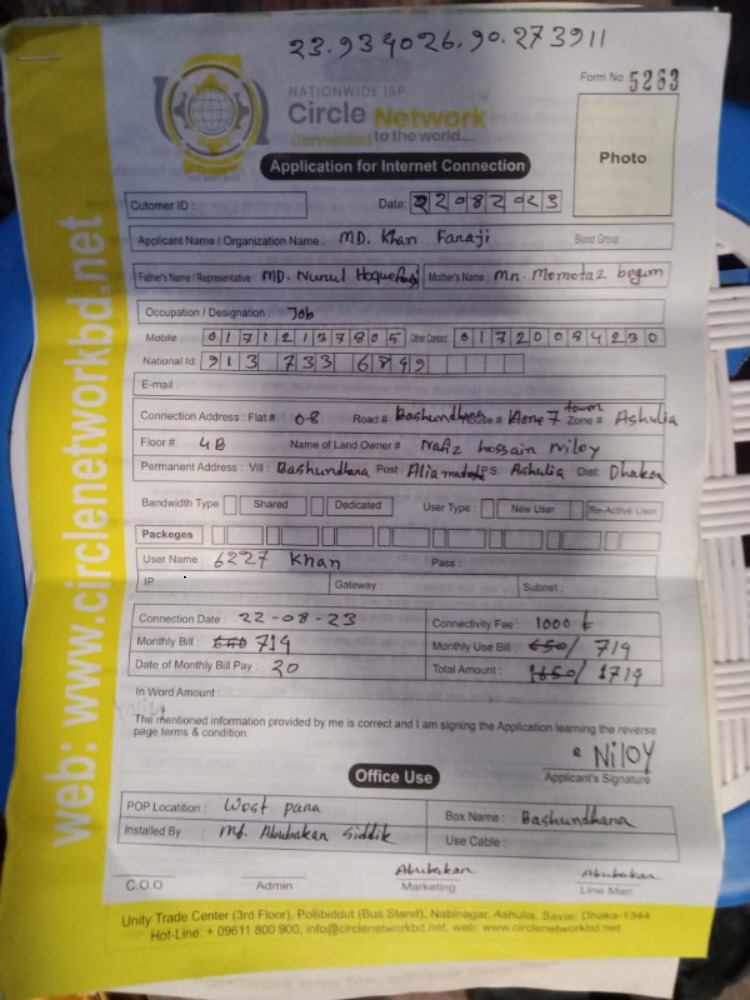 23.934026,90.273911
Form No 5263
NATIONWIDE ISP
Circle Network
Connected to the world....
Photo
Application for Internet Connection
Cutomer ID : Date: 22082023
Applicant Name / Organization Name : MD. Khan Faraji Blood Group
Father's Name / Representative : MD. Nurul Hoque Mother's Name : Mn. Momotaz begum
Occupation / Designation : Job
Mobile : 01712137805 Other Contact : 01720084230
National Id: 913 733 6849
E-mail :
Connection Address : Flat # 08 Road # Bashundhara House # 7 tower Zone # Ashulia
Floor # 4B Name of Land Owner # Nafiz hossain niloy
Permanent Address : Vill : Bashundhara Post : Alia P.S Ashulia Dist: Dhaka
Bandwidth Type Shared Dedicated User Type : New User Re-Active User
Packeges
User Name : 6227 Khan Pass :
IP Gateway : Subnet :
Connection Date : 22-08-23 Connectivity Fee : 1000 t
Monthly Bill : 650 719 Monthly Use Bill : 650/ 719
Date of Monthly Bill Pay : 20 Total Amount : 1650/ 1719
In Word Amount
The mentioned information provided by me is correct and I am signing the Application learning the reverse
page terms & condition.
NiloY
Applicant's Signature
Office Use
POP Locatition : West para Box Name : Bashundhara
Installed By : Md. Abubakar Siddik Use Cable :
Abubakar Abubakar
C.O.O Admin Marketing Line Man
Unity Trade Center (3rd Floor), Pollibiddut (Bus Stand), Nabinagar, Ashulia, Savar, Dhaka-1344
Hot-Line: + 09611 800 900, info@circlenetworkbd.net, web: www.circlenetworkbd.net
web: www.circlenetworkbd.net